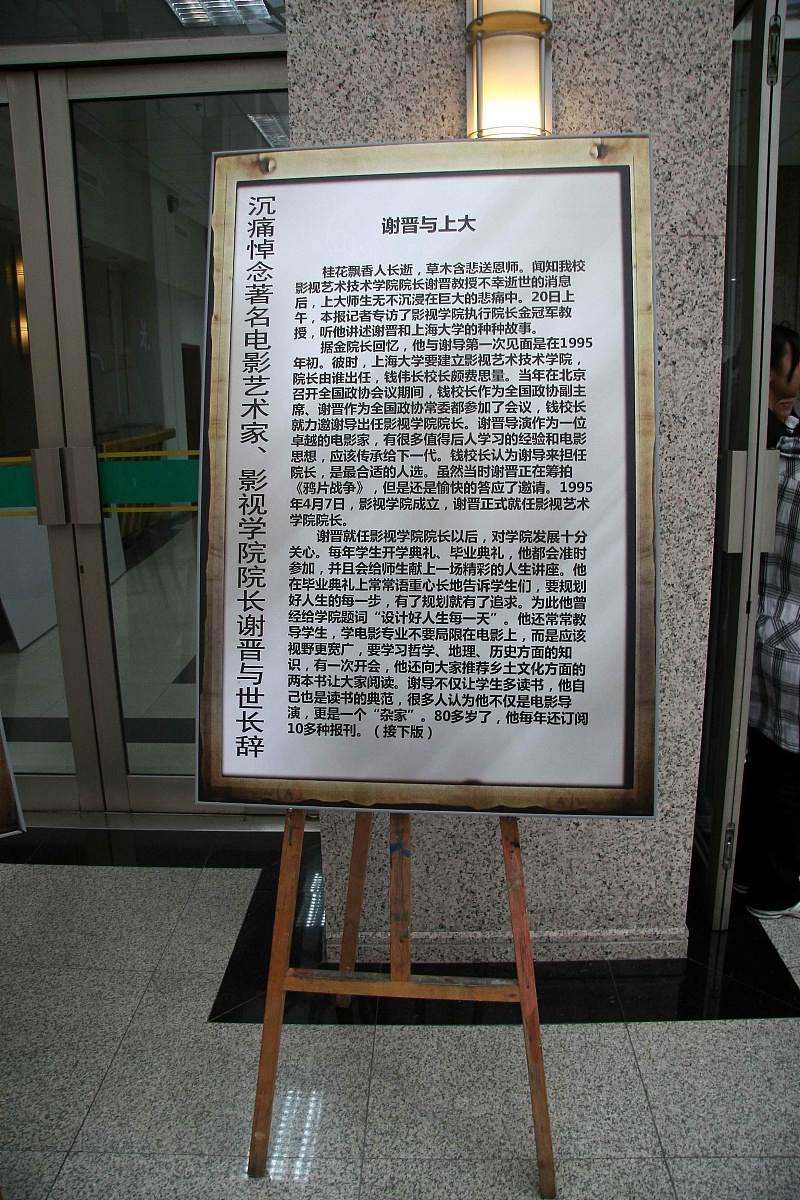 沉痛悼念著名电影艺术家、影视学院院长谢晋与世长辞
谢晋与上大
桂花飘香人长逝，草木含悲送恩师。闻知我校
影视艺术技术学院院长谢晋教授不幸逝世的消息
后，上大师生无不沉浸在巨大的悲痛中。20日上
午，本报记者专访了影视学院执行院长金冠军教
授，听他讲述谢晋和上海大学的种种故事。
据金院长回忆，他与谢导第一次见面是在1995
年初。彼时，上海大学要建立影视艺术技术学院，
院长由谁出任，钱伟长校长颇费思量。当年在北京
召开全国政协会议期间，钱校长作为全国政协副主
席、谢晋作为全国政协常委都参加了会议，钱校长
就力邀谢导出任影视学院院长。谢晋导演作为一位
卓越的电影家，有很多值得后人学习的经验和电影
思想，应该传承给下一代。钱校长认为谢导来担任
院长，是最合适的人选。虽然当时谢晋正在筹拍
《鸦片战争》，但是还是愉快的答应了邀请。1995
年4月7日，影视学院成立，谢晋正式就任影视艺术
学院院长。
谢晋就任影视学院院长以后，对学院发展十分
关心。每年学生开学典礼、毕业典礼，他都会准时
参加，并且会给师生献上一场精彩的人生讲座。他
在毕业典礼上常常语重心长地告诉学生们，要规划
好人生的每一步，有了规划就有了追求。为此他曾
经给学院题词“设计好人生每一天”。他还常常教
导学生，学电影专业不要局限在电影上，而是应该
视野更宽广，要学习哲学、地理、历史方面的知
识，有一次开会，他还向大家推荐乡土文化方面的
两本书让大家阅读。谢导不仅让学生多读书，他自
己也是读书的典范，很多人认为他不仅是电影导
演，更是一个“杂家”。80多岁了，他每年还订阅
10多种报刊。（接下版）